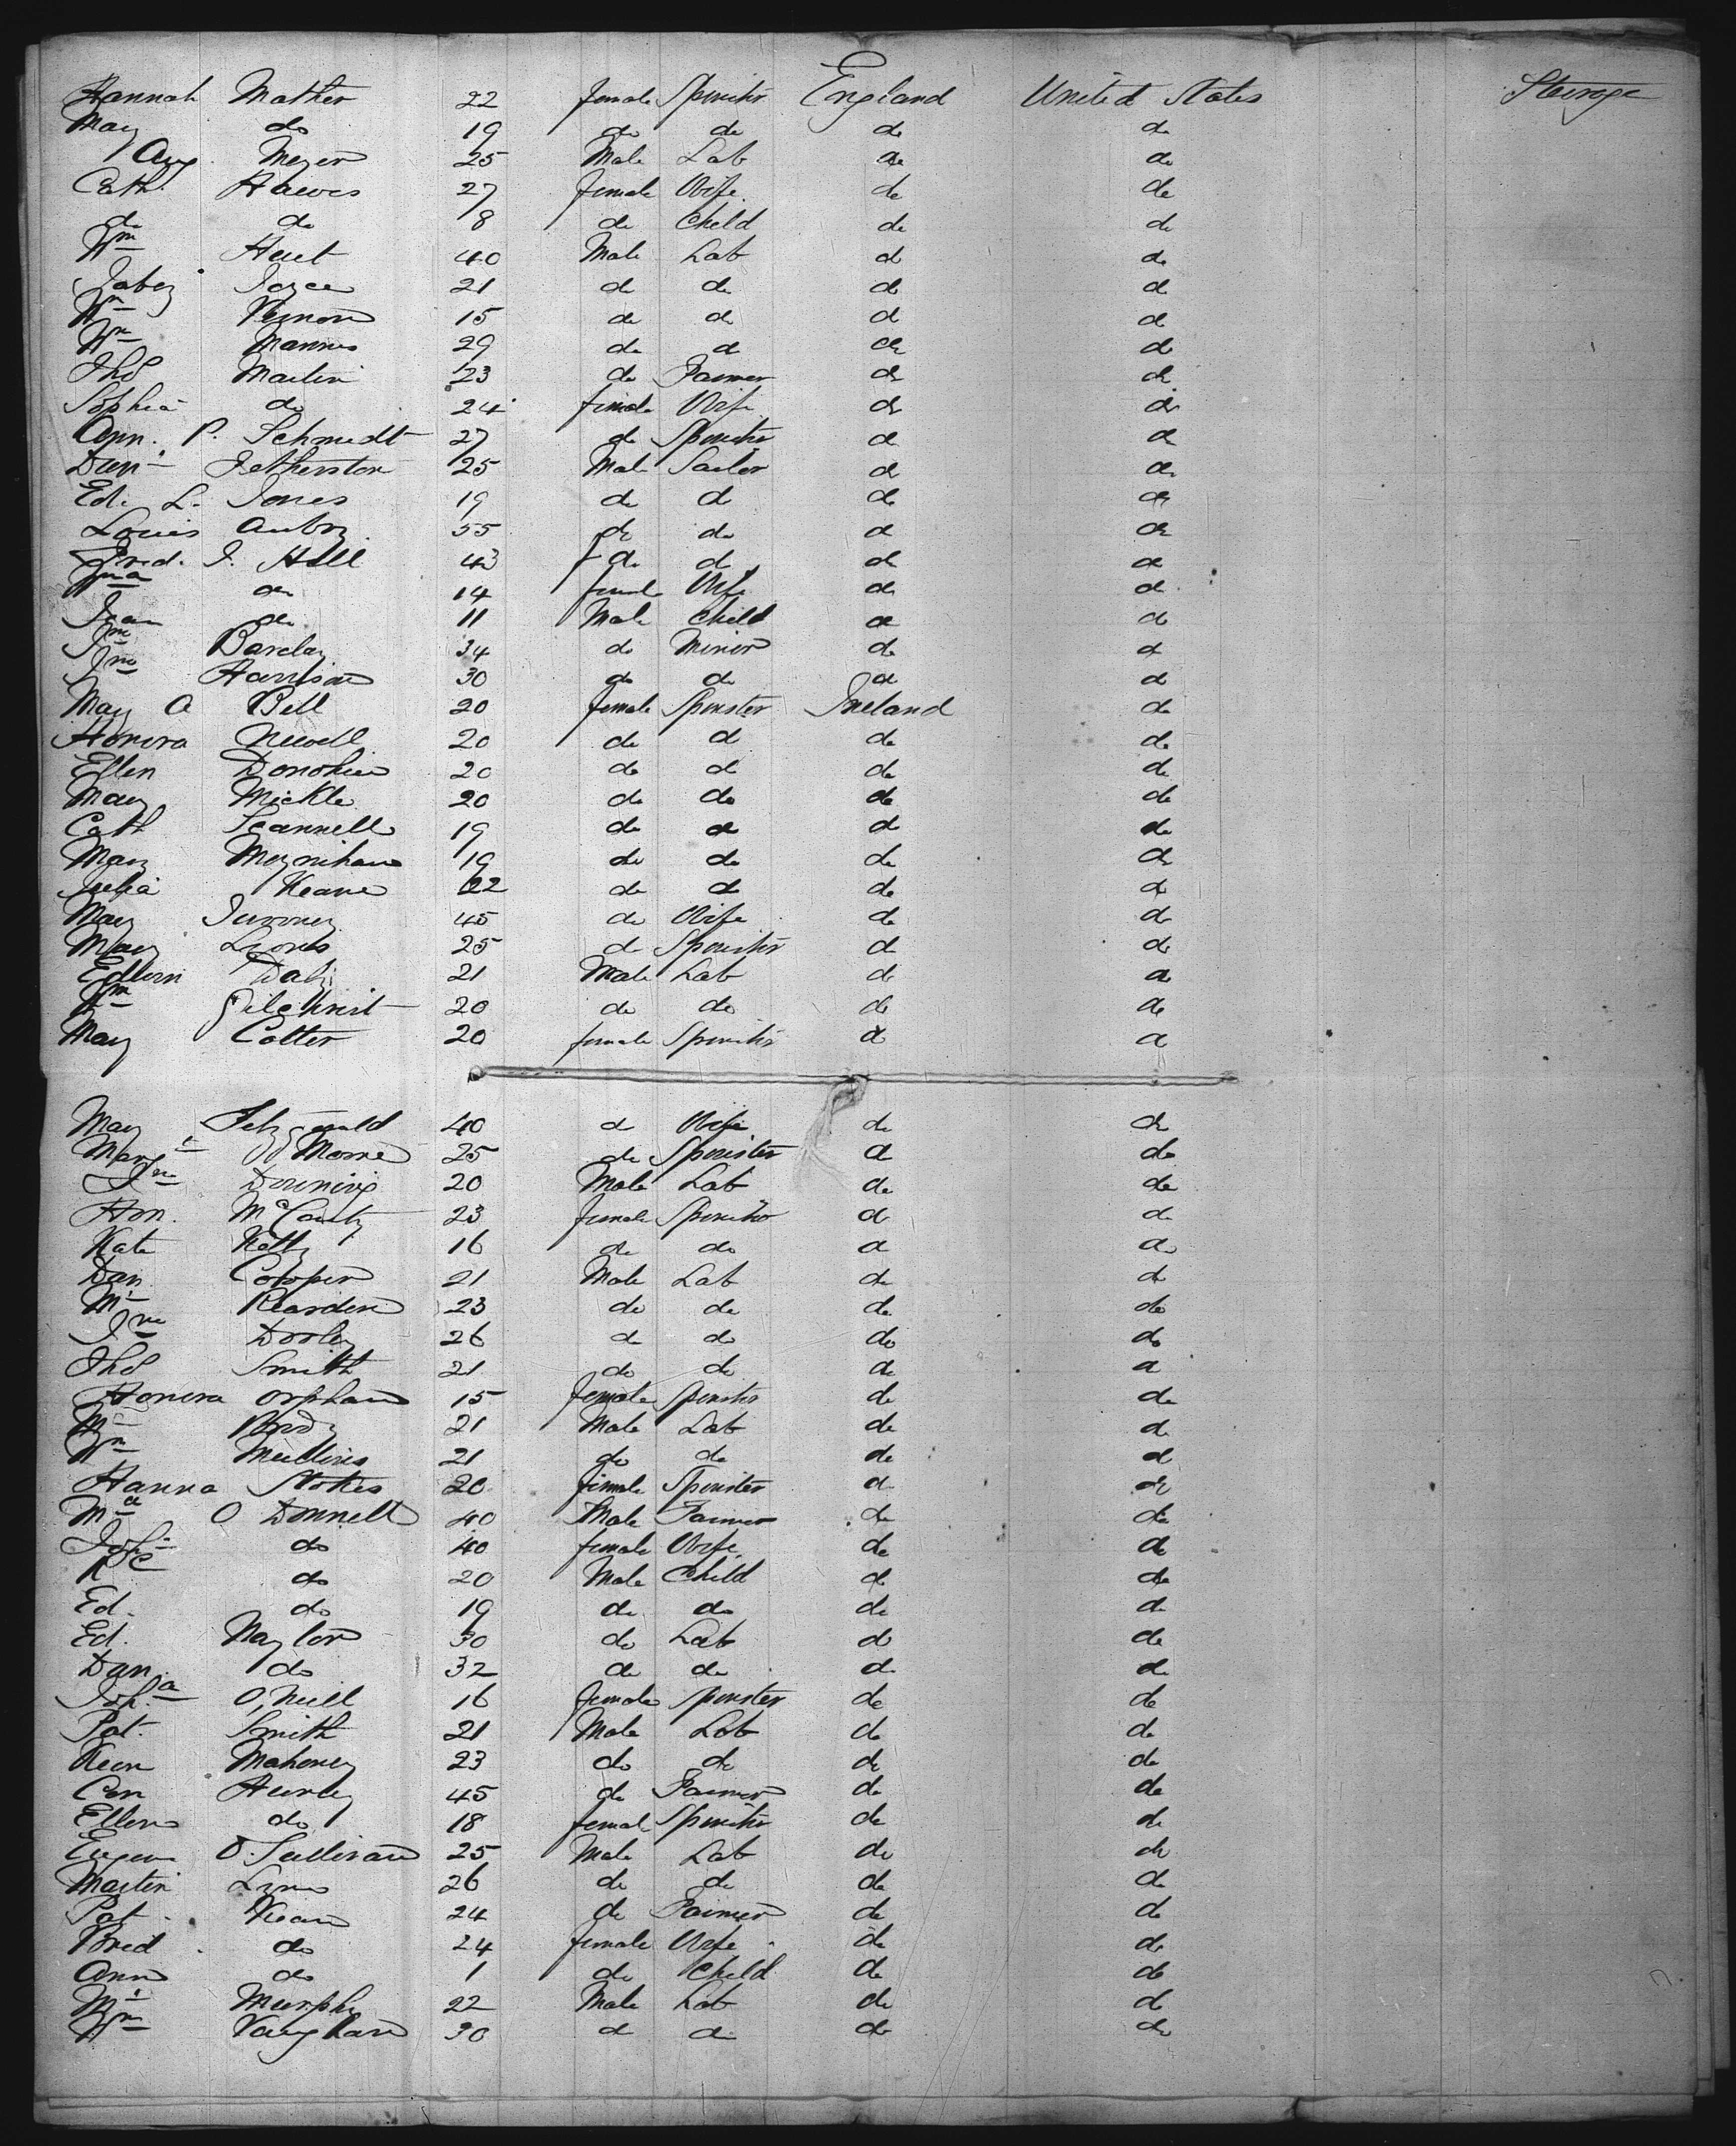 Hannah Mather 22 female Spinster England United States Steerage
Mary do 19 do do do do
Aug. Meyer 25 Male Lab do do
Cath. Hawes 27 female Wife do do
do do 8 do Child do do
Wm Hunt 40 Male Lab do do
Jabez Joyce 21 do do do do
Wm Vernon 15 do do do do
Wm Mannus 29 do do do do
Thos Martin 23 do Farmer do do
Sophia do 24 female Wife do do
Ann. P. Schmidt 27 do Spinster do do
Danl Fetherston 25 Male Sailor do do
Ed. L. Jones 19 do do do do
Louis Aubry 55 do do do do
Fred. J. Hill 43 do do do do
do 14 female Wife do do
do 11 Male Child do do
Barclay 34 do Miner do do
Jno Harrison 30 do do do do
Mary A Bell 20 female Spinster Ireland do
Honora Newell 20 do do do do
Ellen Donohue 20 do do do do
Mary Mickle 20 do do do do
Cath Scannell 19 do do do do
Mary Moynihan 19 do do do do
Julia Keane 22 do do do do
Mary 45 do Wife do do
Mary Lyons 25 do Spinster do do
Daly 21 Male Lab do do
Wm Gilchrist 20 do do do do
Mary Cotter 20 female Spinster do do
Mary Fitzgerald 40 do Wife do do
Margt Morne 25 do Spinster do do
Jno Downing 20 Male Lab do do
Hon. McCarty 23 female Spinster do do
Kate Kelly 16 do do do do
Dan Cooper 21 Male Lab do do
Ml Rearden 23 do do do do
Jno Dooley 26 do do do do
Thos Smith 21 do do do do
Honora Orphan 15 female Spinster do do
Ml Brody 21 Male Lab do do
Wm Mullins 21 do do do do
Hanna Stokes 20 female Spinster do do
O Donnell 40 Male Farmer do do
do 40 female Wife do do
do 20 Male Child do do
Ed. do 19 do do do do
Ed. Naylor 30 do Lab do do
Dan. do 32 do do do do
Joha O'Neill 16 female Spinster do do
Pat. Smith 21 Male Lab do do
Keon Mahoney 23 do do do do
Con Hurley 45 do Farmer do do
Ellen do 18 female Spinster do do
Eugene O. Sullivan 25 Male Lab do do
Martin Lyns 26 do do do do
Pat. Kean 24 do Farmer do do
Brid. do 24 female Wife do do
Ann do 1 do Child do do
Ml Murphy 22 Male Lab do do
Wm Vaughan 30 do do do do